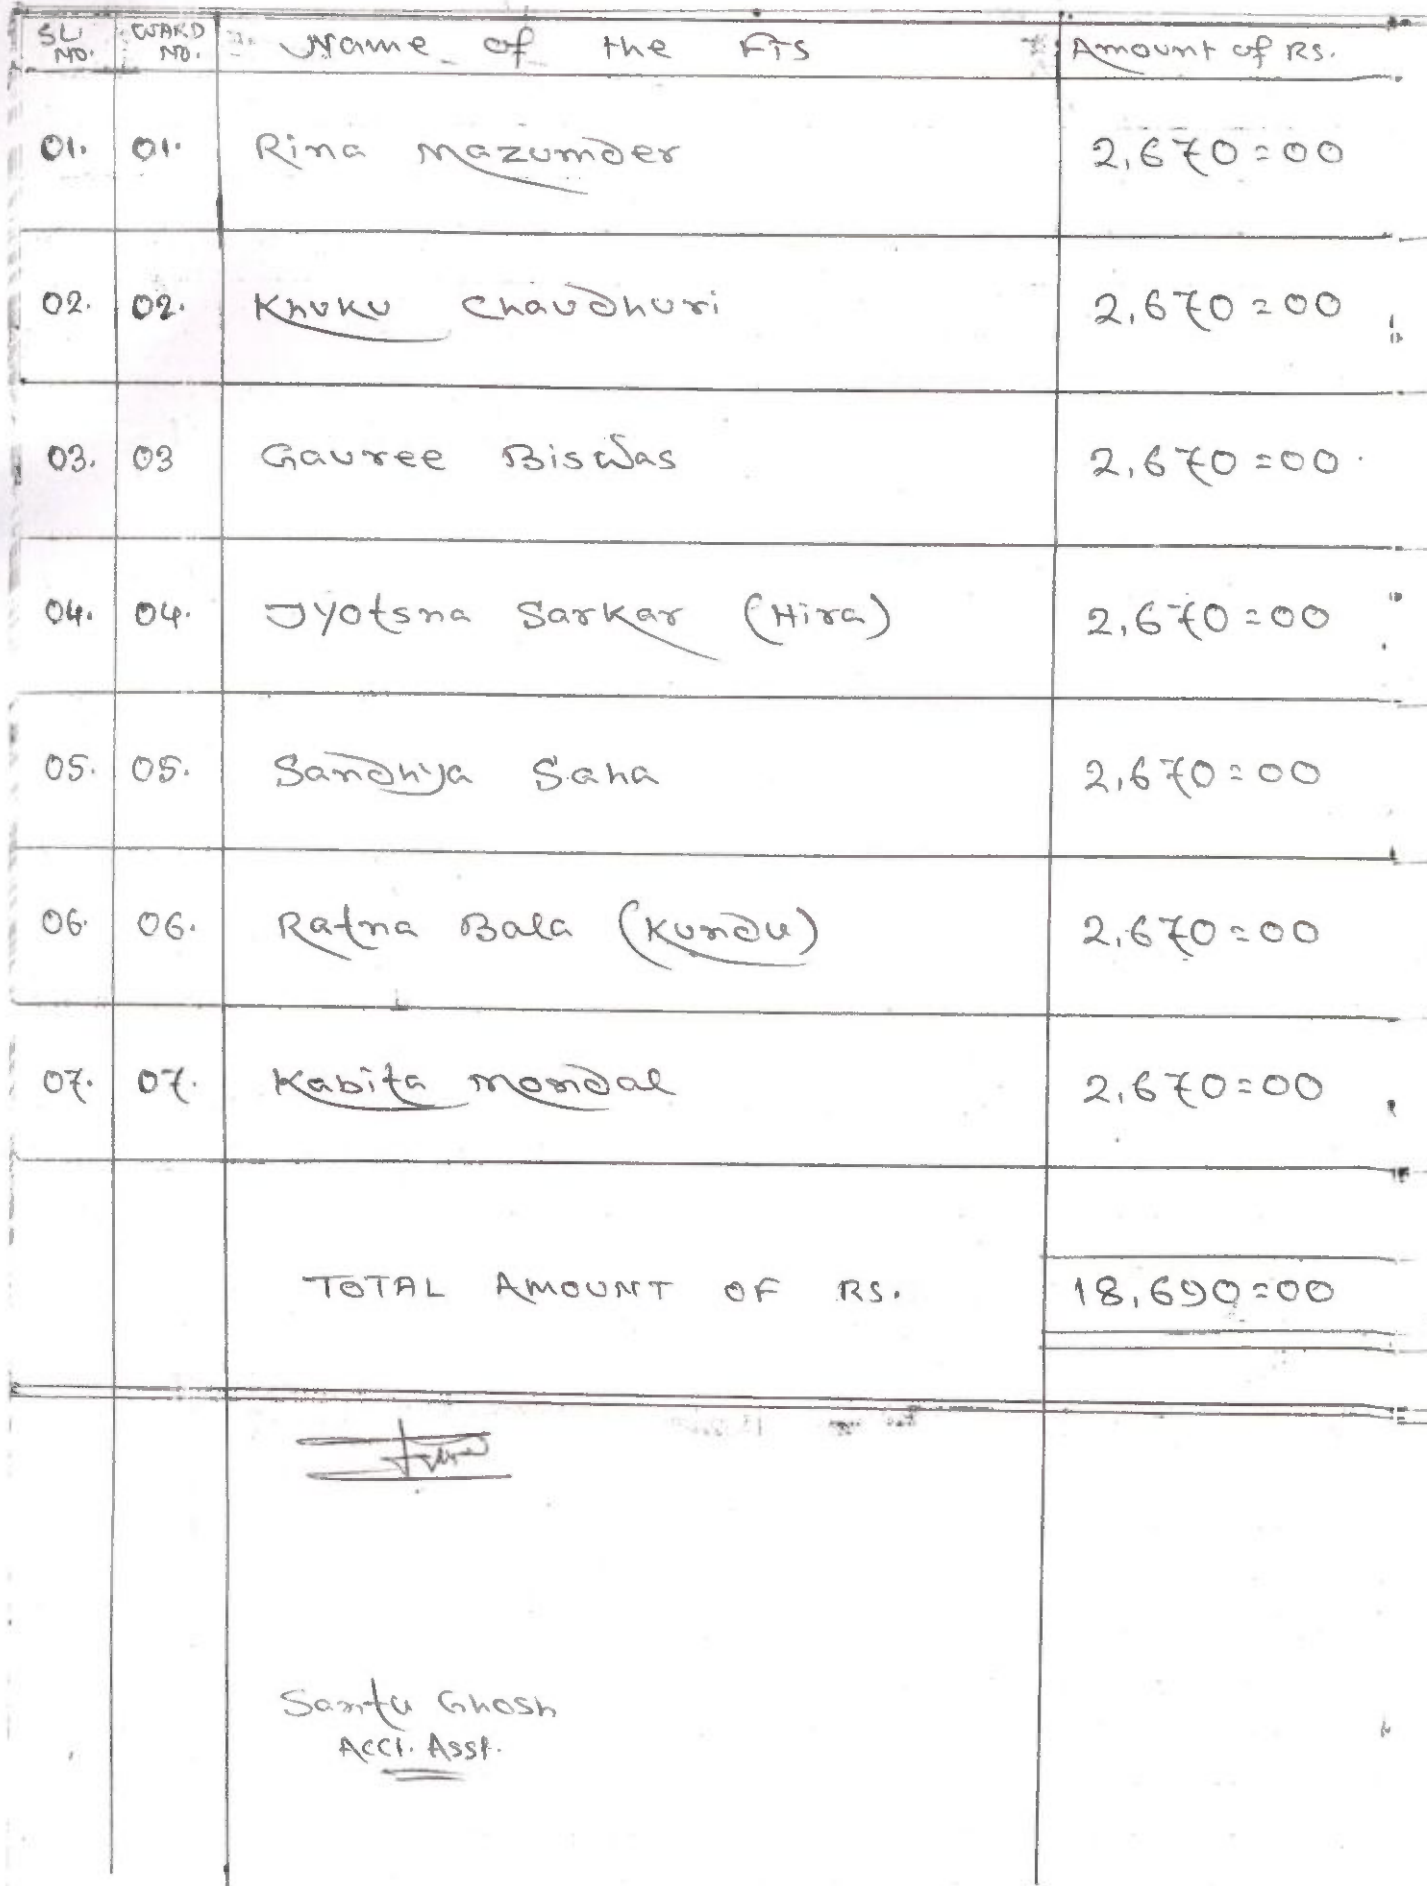 SL NO. WARD NO. Name of the FTS Amount of RS.
01. 01. Rina Mazumder 2,670=00
02. 02. Khuku Chaudhuri 2,670=00
03. 03 Gauree Biswas 2,670=00
04. 04. Jyotsna Sarkar (Hira) 2,670=00
05. 05. Sandhya Saha 2,670=00
06. 06. Ratna Bala (Kundu) 2,670=00
07. 07. Kabita Mondal 2,670=00
TOTAL AMOUNT OF RS. 18,690=00
Santu Ghosh
Acct. Asst.